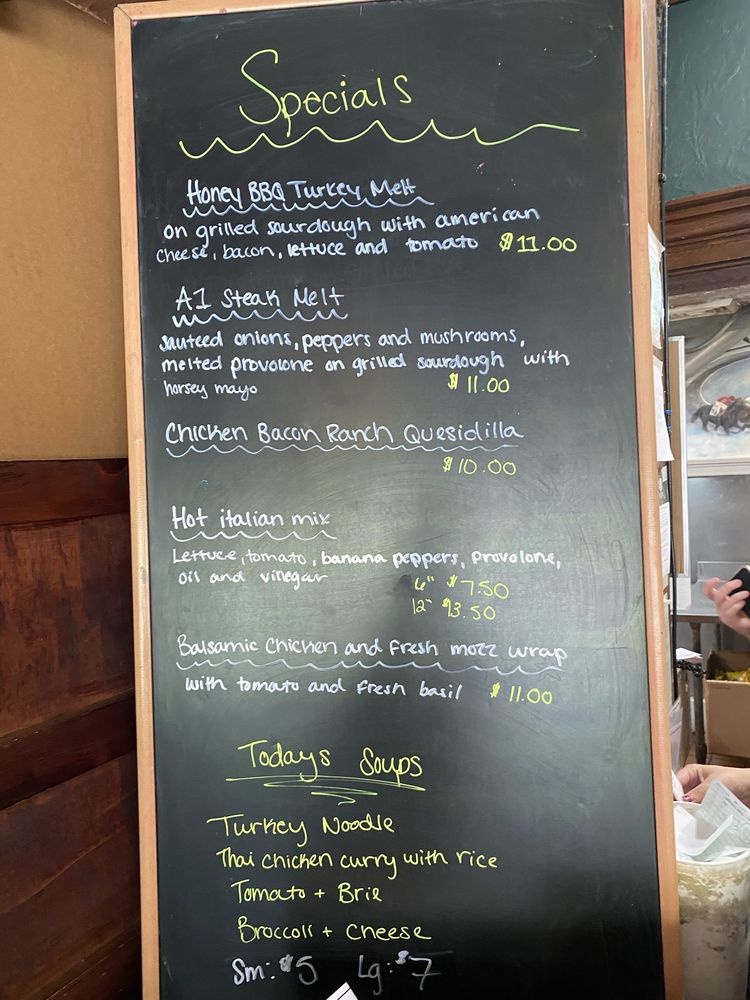 Specials
Honey BBQ Turkey Melt
on grilled sourdough with american
cheese, bacon, lettuce and tomato $11.00
A1 Steak Melt
sauteed onions, peppers and mushrooms,
melted provolone on grilled sourdough with
horsey mayo $11.00
Chicken Bacon Ranch Quesidilla
$10.00
Hot italian mix
Lettuce, tomato, banana peppers, provolone,
oil and vinegar 6" $7.50
12" $13.50
Balsamic Chicken and Fresh mozz wrap
with tomato and fresh basil $11.00
Todays Soups
Turkey Noodle
Thai chicken curry with rice
Tomato + Brie
Broccoli + Cheese
Sm: $5 Lg: $7